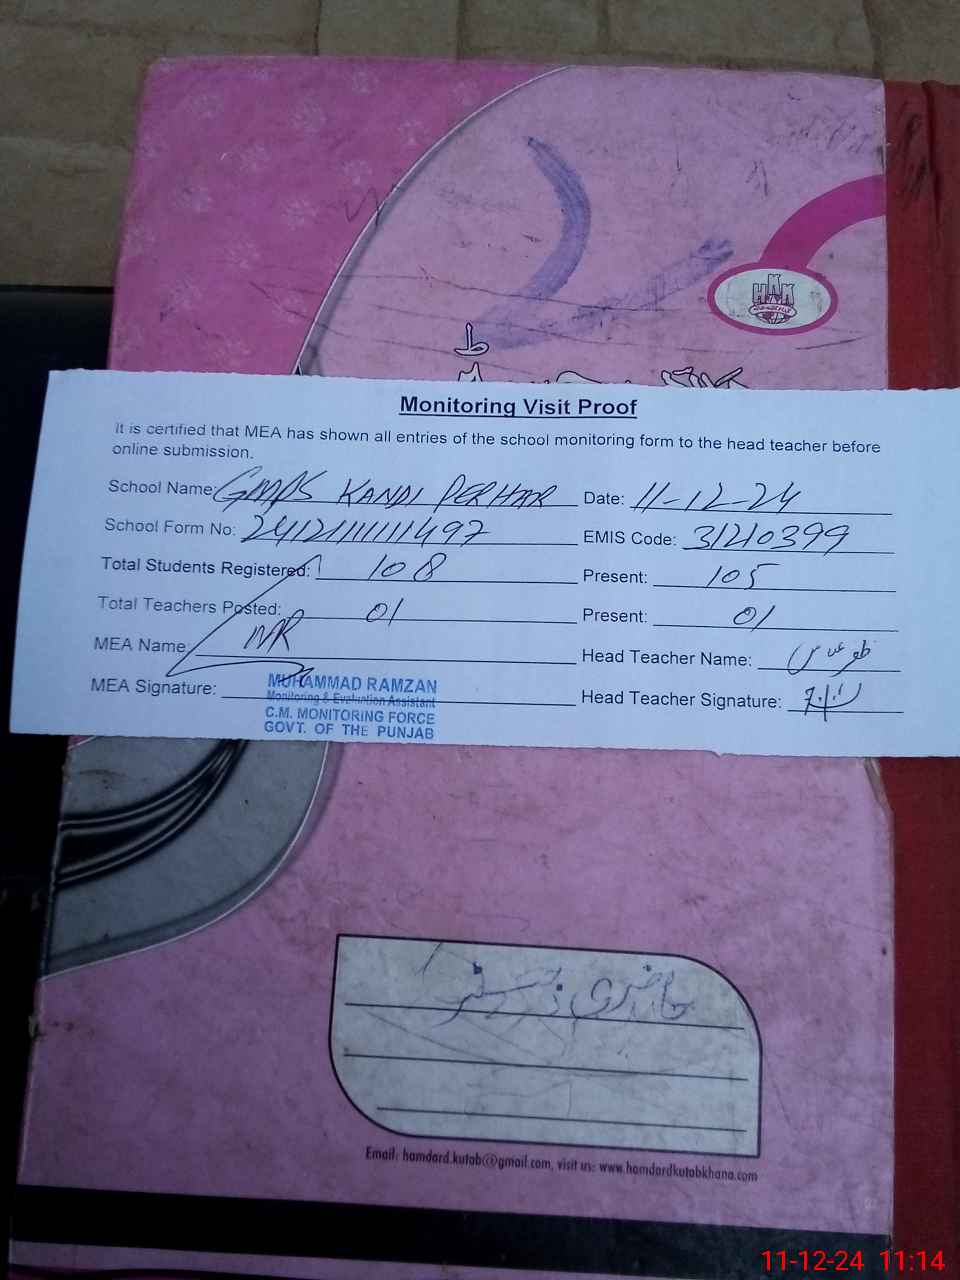 HKK
ط
Monitoring Visit Proof
It is certified that MEA has shown all entries of the school monitoring form to the head teacher before
online submission.
School Name: GMPS KANDI PERHAR Date: 11-12-24
School Form No: EMIS Code: 31210399
Total Students Registered: 108 Present: 105
Total Teachers Posted: 01 Present: 01
MEA Name: MR Head Teacher Name:
MEA Signature: Head Teacher Signature:
MUHAMMAD RAMZAN
Monitoring & Evaluation Assistant
C.M. MONITORING FORCE
GOVT. OF THE PUNJAB
حاضری
Email: hamdard.kutab@gmail.com, visit us: www.hamdardkutabkhana.com
11-12-24 11:14